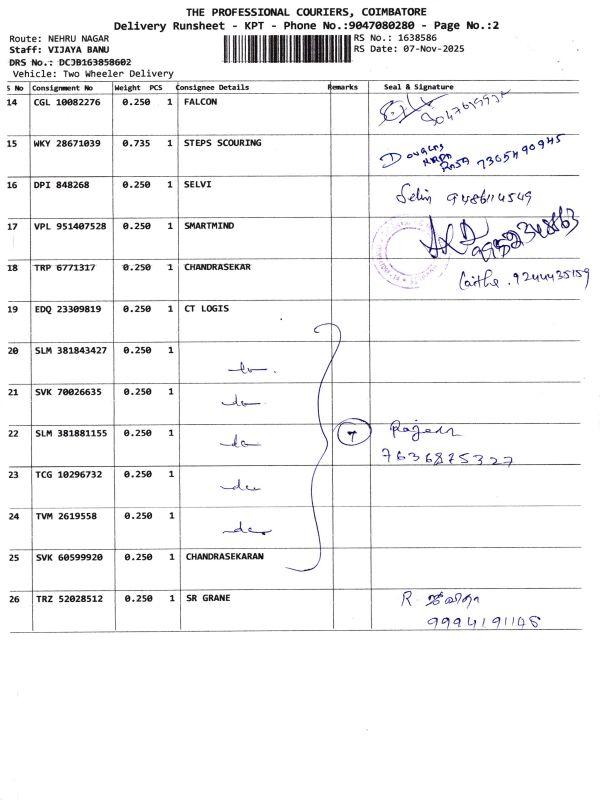 THE PROFESSIONAL COURIERS, COIMBATORE
Delivery Runsheet - KPT - Phone No.:9047080280 - Page No.:2
Route: NEHRU NAGAR RS No.: 1638586
Staff: VIJAYA BANU RS Date: 07-Nov-2025
DRS No.: DCJB163858602
Vehicle: Two Wheeler Delivery
S No Consignment No Weight PCS Consignee Details Remarks Seal & Signature
14 CGL 10082276 0.250 1 FALCON
15 WKY 28671039 0.735 1 STEPS SCOURING Douglas
7305490945
16 DPI 848268 0.250 1 SELVI Selvi 9486114549
17 VPL 951407528 0.250 1 SMARTMIND
18 TRP 6771317 0.250 1 CHANDRASEKAR 9244435159
19 EDQ 23309819 0.250 1 CT LOGIS
20 SLM 381843427 0.250 1
do
21 SVK 70026635 0.250 1
do
22 SLM 381881155 0.250 1 7 Rajesh
do 7636875327
23 TCG 10296732 0.250 1
do
24 TVM 2619558 0.250 1
do
25 SVK 60599920 0.250 1 CHANDRASEKARAN
26 TRZ 52028512 0.250 1 SR GRANE R
9994191148